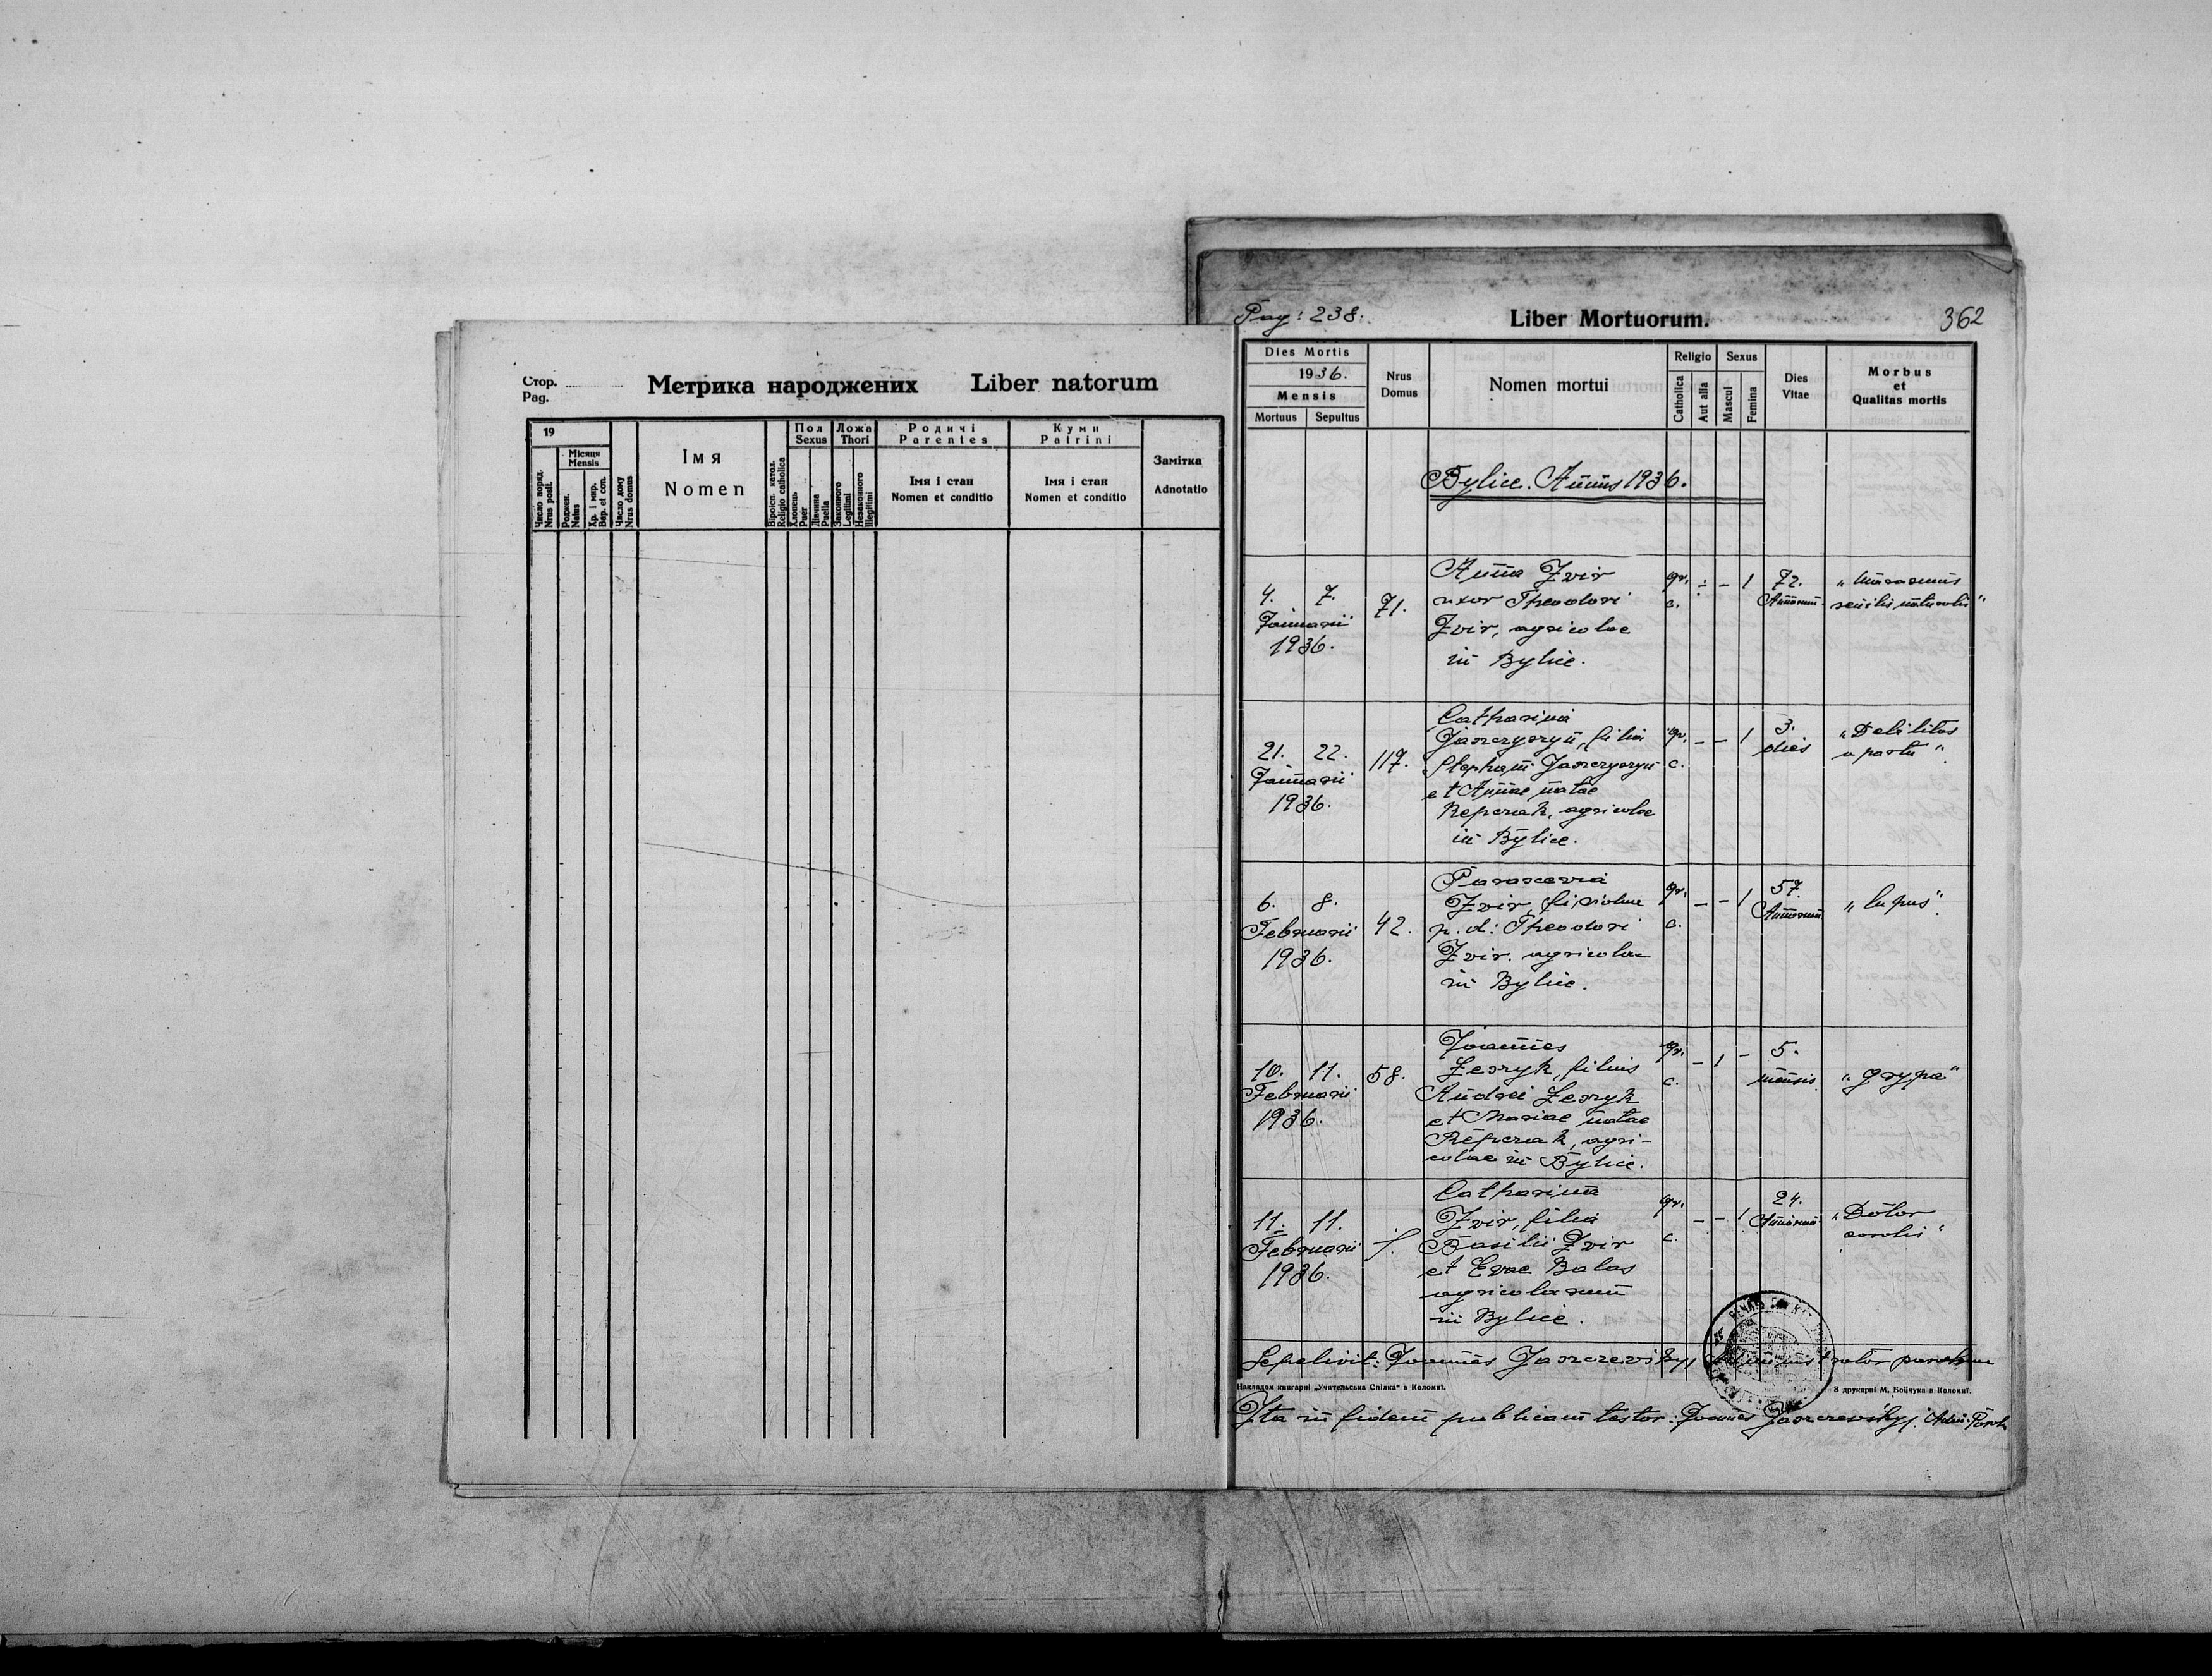 Стор.
Pag.
Метрика народжених Liber natorum
19
Число поряд.
Nrus posit.
Місяця
Mensis
Роджен.
Natus
Хр. і мир.
Bap. et con.
Число дому
Nrus domus
Імя
Nomen
Віроісп. катол.
Religio catholica
Пол
Sexus
Хлопець
Puer
Дівчина
Puella
Ложа
Thori
Законного
Legitimi
Незаконного
Illegitimi
Родичі
Parentes
Імя і стан
Nomen et conditio
Куми
Patrini
Імя і стан
Nomen et conditio
Замітка
Adnotatio
Pag: 238.
Liber Mortuorum.
362
Dies Mortis
1936.
Mensis
Mortuus Sepultus
Nrus
Domus
Nomen mortui
Religio
Catholica
Aut alia
Sexus
Mascul
Femina
Dies
Vitae
Morbus
et
Qualitas mortis
Bylice. Annus 1936.
4. 7.
Januarii
1936.
71.
Anna Zvir
uxor Theodori
Zvir, agricolae
in Bylice.
gr.
c.
- - 1
72.
Annorum
„Marasmus
senilis naturalis"
21. 22.
Januarii
1936.
117.
Catharina
Jaszczyszyn, filia
Stephani Jaszczyszyn
et Annae natae
Repczak, agricolae
in Bylice.
gr.
c.
- - 1
3.
dies
„Debilitas
a partu"
6. 8.
Februarii
1936.
42.
Parascevia
Zvir,
p. d: Theodori
Zvir. agricolae
in Bylice.
gr.
c.
- - 1
57.
Annorum
„lupus"
10. 11.
Februarii
1936.
58.
Joannes
filius
Andrei
et Mariae natae
Repczak, agri-
colae in Bylice.
gr.
c.
- 1 -
5.
mensis
„grypa"
11. 11.
Februarii
1936.
Catharina
Zvir, filia
Basilii Zvir
et Evae Balas
agricolarum
in Bylice.
gr.
c.
- - 1
24.
Annorum
„Dolor
cordis"
Sepelivit: Joannes Jaszczevśkyj, Administrator parochiae
Накладом книгарні „Учительська Спілка" в Коломиї.
З друкарні М. Бойчука в Коломиї.
Ita in fidem publicam testor: Joannes Jaszczevśkyj. Adm. Paroch